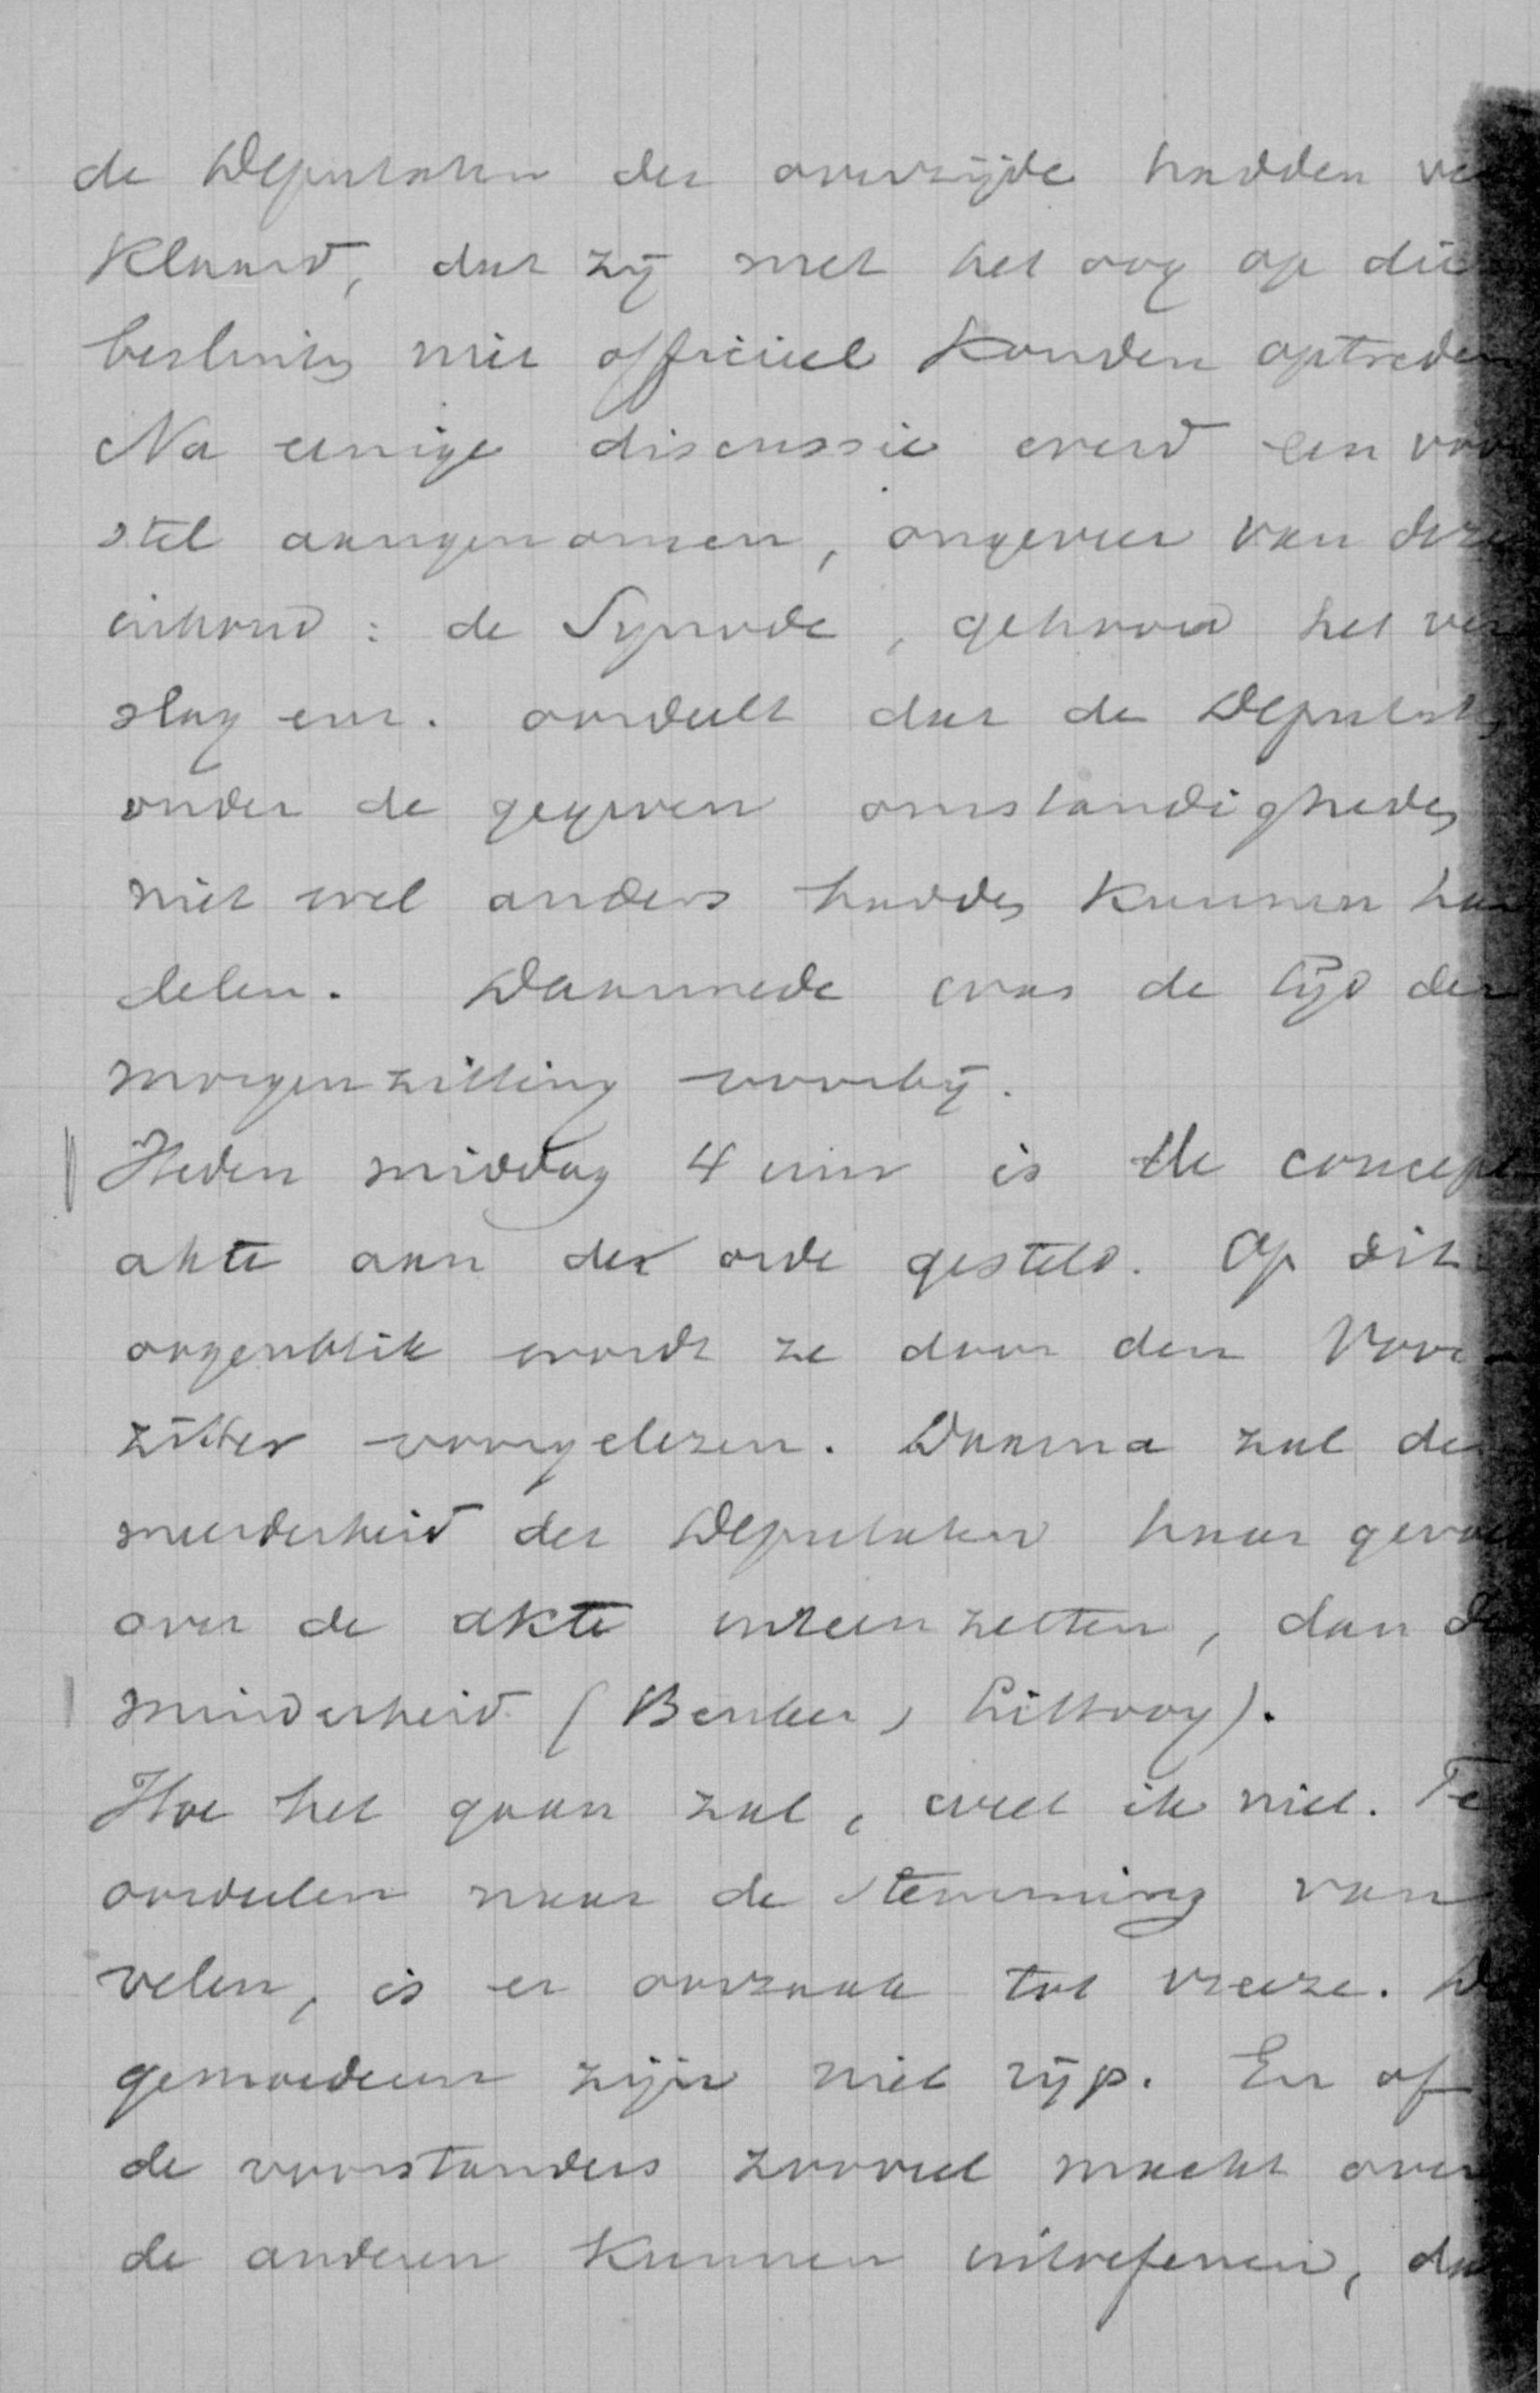 de Deputaten der overzijde hadden ver
klaard, dat zij met het oog op die
besluiten niet officiëel konden optreden
Na eenige discussie werd een voor
stel aangenomen, ongeveer van dezen
inhoud: de Synode, gehoord het ver
slag enz. oordeelt dat de Deputaten
onder de gegeven omstandigheden
niet wel anders hadden kunnen han
delen. Daarmede was de tijd der
morgenzitting voorbij.
Heden middag 4 uur is de concept
akte aan de orde gesteld. Op dit
oogenblik wordt ze door den Voor-
zitter voorgelezen. Daarna zal de
meerderheid der Deputaten haar gevoelen
over de akte uiteenzetten, dan de
minderheid (Becker, Littooy).
Hoe het gaan zal, weet ik niet. Te
oordeelen naar de stemming van
velen, is er oorzaak tot vreeze. De
gemoederen zijn niet rijp. En of
de voorstanders zooveel macht over
de anderen kunnen uitoefenen, dat